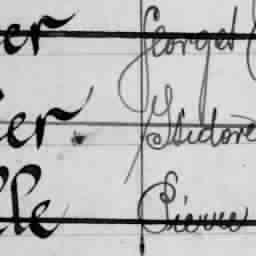 er Georges
er Isidore
lle Pierre